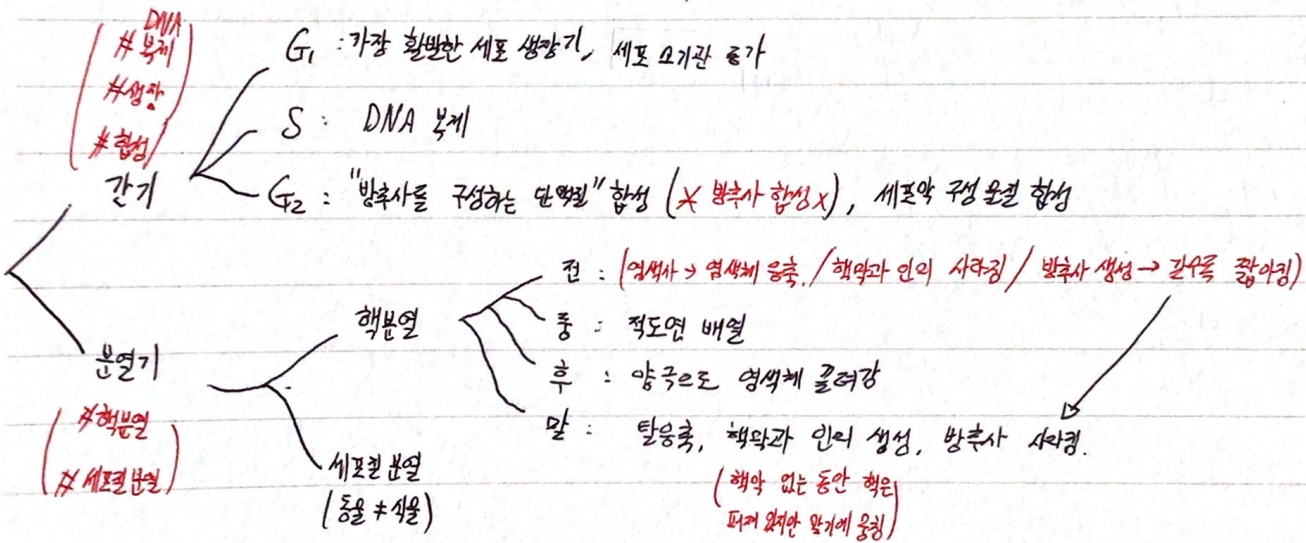 DNA
# 복제
# 생장
# 합성
간기
G₁ : 가장 활발한 세포 생장기, 세포 소기관 증가
S : DNA 복제
G₂ : "방추사를 구성하는 단백질" 합성 (* 방추사 합성 x), 세포막 구성 물질 합성
분열기
# 핵분열
# 세포질 분열
핵분열
전 : (염색사 → 염색체 응축. / 핵막과 인의 사라짐 / 방추사 생성 → 갈수록 짧아짐)
중 : 적도면 배열
후 : 양극으로 염색체 끌려감
말 : 탈응축, 핵막과 인의 생성, 방추사 사라짐.
(핵막 없는 동안 핵은
퍼져 있지만 말기에 뭉침)
세포질 분열
(동물 ≠ 식물)